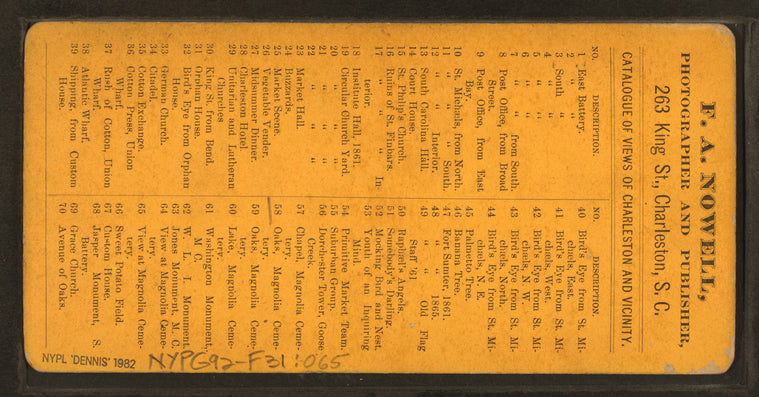 F. A. NOWELL,
PHOTOGRAPHER AND PUBLISHER,
263 King St., Charleston, S. C.
CATALOGUE OF VIEWS OF CHARLESTON AND VICINITY.
NO. DESCRIPTION.
1 East Battery.
2 " "
3 South "
4 " "
5 " "
6 " "
7 " " from South.
8 Post Office, from Broad
Street.
9 Post Office, from East
Bay.
10 St. Michaels, from North.
11 " " " South.
12 " " Interior.
13 South Carolina Hall.
14 Court House.
15 St. Philip's Church.
16 Ruins of St. Finbars.
17 " " " In-
terior.
18 Institute Hall, 1861.
19 Circular Church Yard.
20 " " "
21 " " "
22 " " "
23 Market Hall.
24 Buzzards.
25 Market Scene.
26 Vegetable Vender.
27 Michaw Her Dinner.
28 Charleston Hotel.
29 Unitarian and Lutheran
Churches
30 King St. from Bend.
31 Orphan House.
32 Bird's Eye from Orphan
House.
33 German Church.
34 Citadel.
35 Cotton Exchange.
36 Cotton Press, Union
Wharf.
37 Rush of Cotton, Union
Wharf.
38 Atlantic Wharf.
39 Shipping, from Custom
House.
NO. DESCRIPTION.
40 Bird's Eye from St. Mi-
chaels, East.
41 Bird's Eye from St. Mi-
chaels, West.
42 Bird's Eye from St. Mi-
chaels, N. W.
43 Bird's Eye from St. Mi-
chaels, North.
44 Bird's Eye from St. Mi-
chaels, N. E.
45 Palmetto Tree.
46 Banana Tree.
47 Fort Sumter, 1861.
48 " " 1865.
49 " " Old Flag
Staff '61
50 Raphael's Angels.
51 Somebody's Darling.
52 Mocking Bird and Nest.
53 Youth of an Inquiring
Mind
54 Primitive Market Team.
55 Suburban Group.
56 Dorchester Tower, Goose
Creek.
57 Chapel, Magnolia Ceme-
tery.
58 Oaks, Magnolia Ceme-
tery.
59 Oaks, Magnolia Ceme-
tery.
60 Lake, Magnolia Ceme-
tery.
61 Washington Monument,
M. C.
62 W. L. I. Monument.
63 Jones Monument, M. C.
64 View at Magnolia Ceme-
tery.
65 View at Magnolia Ceme-
tery.
66 Sweet Potato Field.
67 Custom House.
68 Jasper Monument, S.
Battery.
69 Grace Church.
70 Avenue of Oaks.
NYPL 'DENNIS' 1982
NYPG92-F31:065